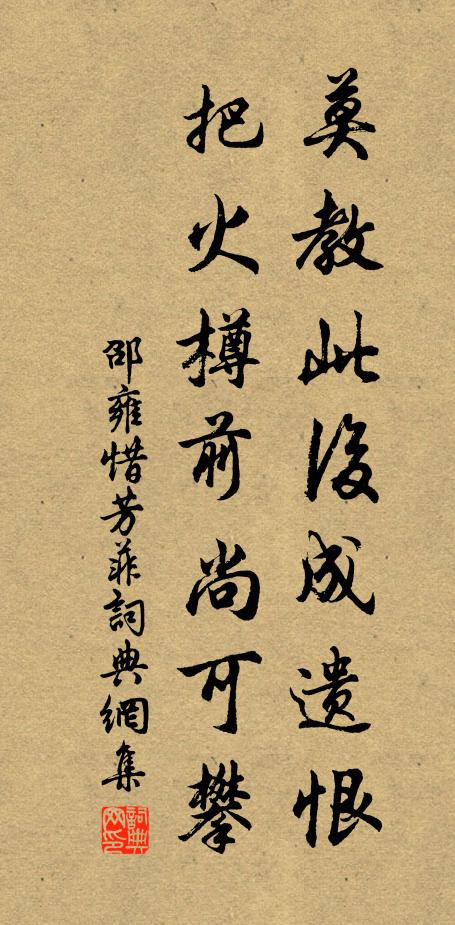 莫教此後成遗恨
把火樽前尚可攀
邵雍惜芳菲詞典網集
詞典
网印